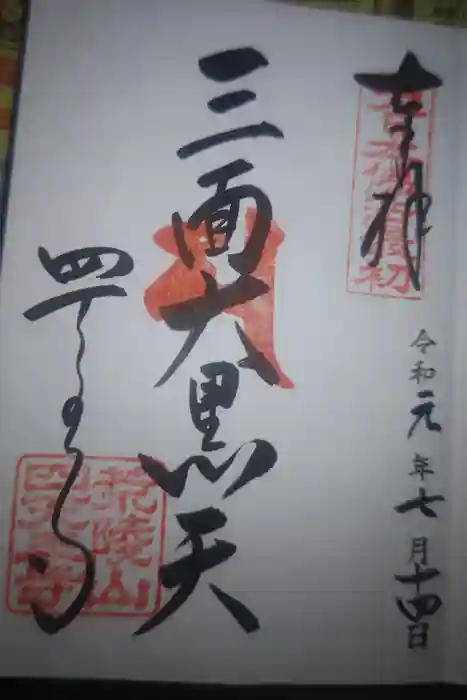 奉拝
令和元年七月十四日
三面大黒天
四天王寺
荒陵山
四天王寺